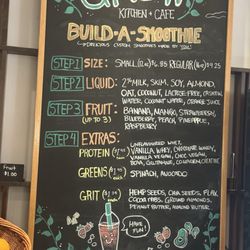 KITCHEN + CAFE
BUILD-A-SMOOTHIE
DELICIOUS CUSTOM SMOOTHIES MADE BY YOU!
STEP 1 SIZE: SMALL REGULAR
STEP 2 LIQUID: 2% MILK, SKIM, SOY, ALMOND,
OAT, COCONUT, LACTOSE-FREE,
WATER, COCONUT WATER, ORANGE JUICE
STEP 3 FRUIT: BANANA, MANGO, STRAWBERRY,
(UP TO 3) BLUEBERRY, PEACH, PINEAPPLE,
RASPBERRY
STEP 4 EXTRAS:
PROTEIN UNFLAVOURED WHEY,
VANILLA WHEY, CHOCOLATE WHEY,
VANILLA VEGAN, CHOC VEGAN,
GREENS SPINACH, AVOCADO
GRIT HEMP SEEDS, CHIA SEEDS, FLAX,
COCOA NIBS, GROUND ALMONDS,
PEANUT BUTTER, ALMOND BUTTER
HAVE FUN!
Fruit
$1.00